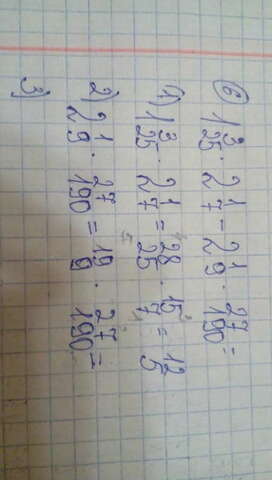 6) 1 3/25 · 2 1/7 - 2 1/9 · 27/190 =
1) 1 3/25 · 2 1/7 = 28/25 · 15/7 = 12/5
2) 2 1/9 · 27/190 = 19/9 · 27/190 =
3)